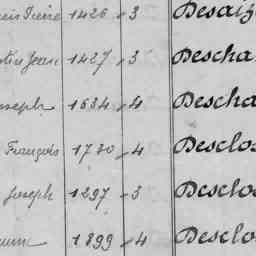 Pierre 1426 3 Desaiz
Jean 1427 3 Descha
Joseph 1634 4 Descha
François 1730 4 Desclo
Joseph 1297 3 Desclo
1399 4 Desclo